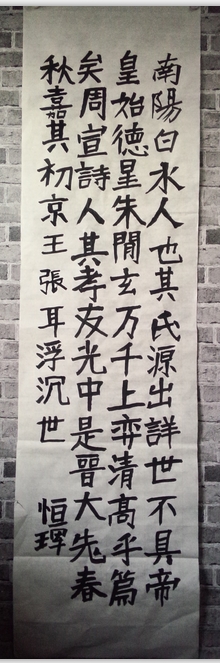 南陽白水人也其氏源出詳世不具帝
皇始德星朱閒玄万千上弈清高乎篇
矣周宣詩人其孝友光中是晉大先春
秋嘉其初京王張耳浮沉世
恒琿